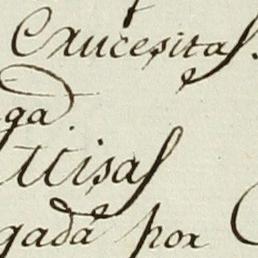 Cruçesitas.
ga
Misas
gada por